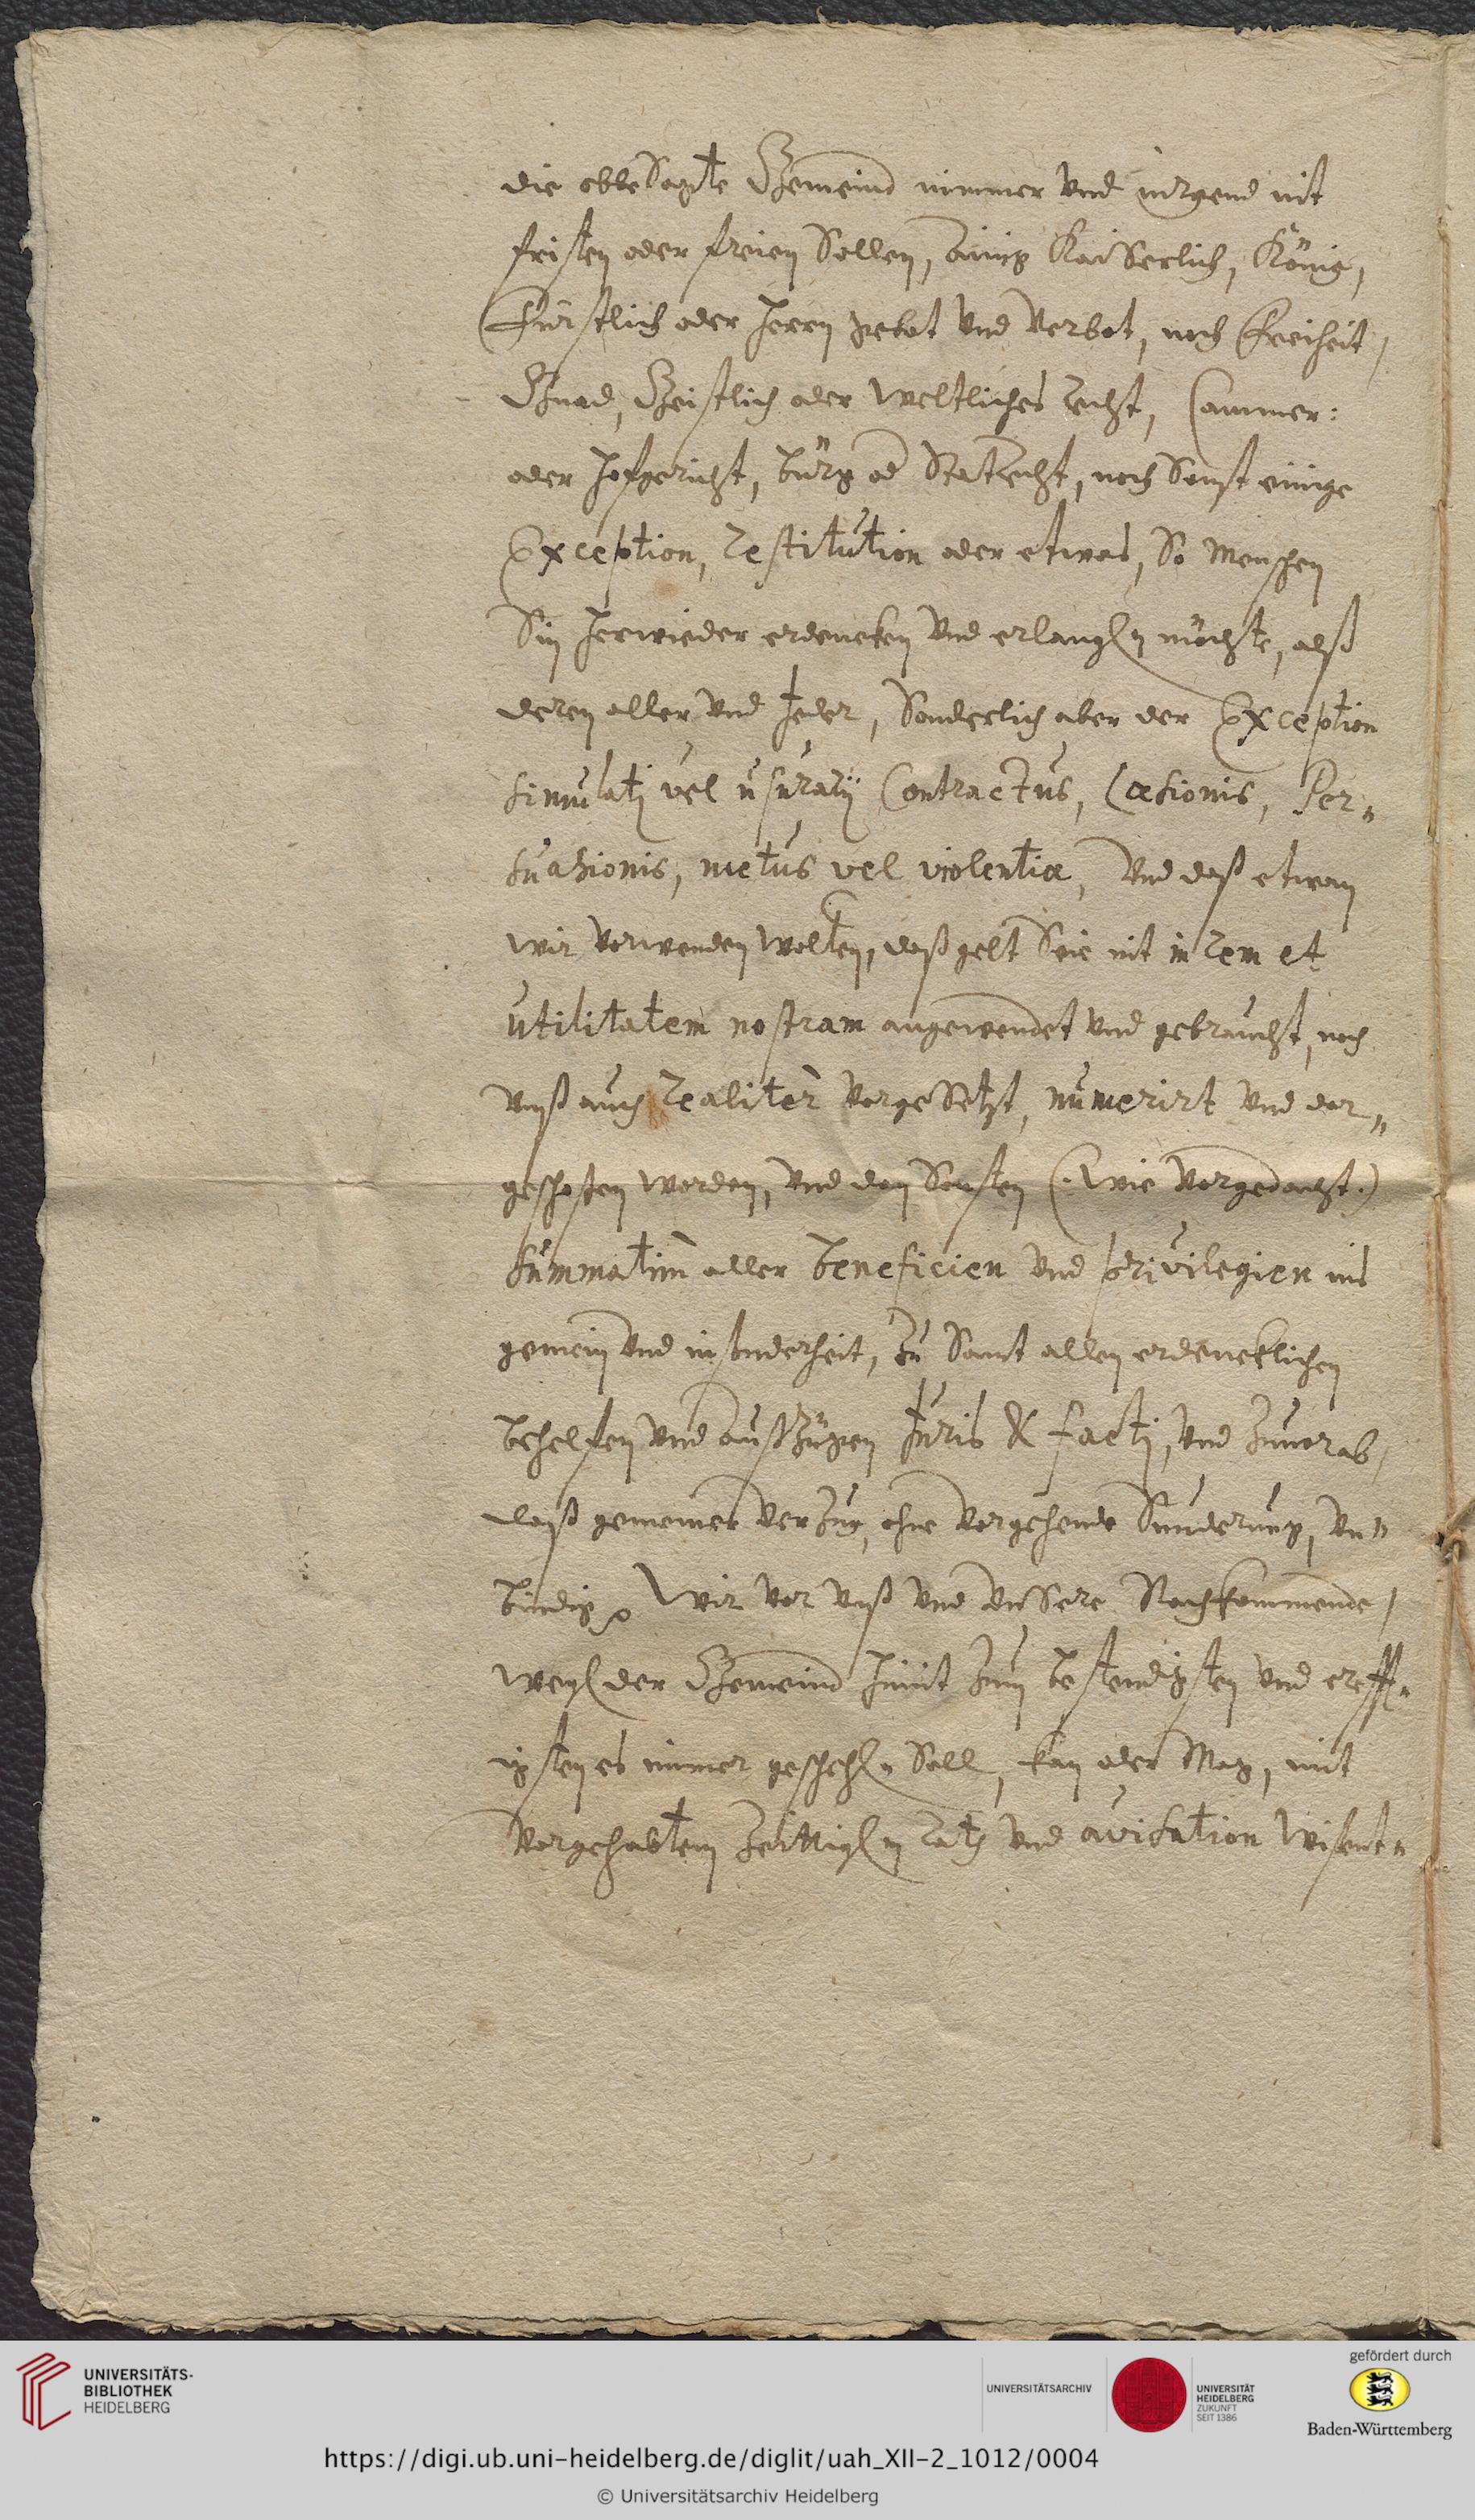 die obbesagte Gemeind nimmer vnd nirgend nit
fristen oder freien sollen, einig Kaiserlich, König,
Fürstlich oder Herrn gebot vnd verbot, noch Freiheit,
Gnad, Geistlich oder Weltliches recht, Cammer:
oder Hofgericht, bürg od Statrecht, noch sonst einige
Exception, restitution oder etwas, so Menschen
Sin herwieder erdencken vnd erlangen möchte, alß
deren aller vnd Jeder, Sonderlich aber der Exception
simulatj vel usurarij Contractus, læsionis, Per„
suasionis, metus vel violentiæ, vnd daß etwan
wir vorwenden wolten, daß gelt seie nit in rem et
vtilitatem nostram angewendet vnd gebraucht, noch
vnß auch realiter vorgesetzt, numerirt vnd dar„
geschossen worden, vnd dan sonsten (: wie vorgedacht :)
summatim aller beneficien vnd privilegien ins
gemein vnd insonderheit, zu samt allen erdencklichen
behelfen vnd außzügen Juris & factj, vnd zuvorab,
daß gemeiner verzug, ohne vorgehende Sunderung, vn„
bindig, Wir vor vnß vnd vnsere Nachkommende,
wegen der Gemeind hiemit zum bestendigsten vnd creff„
igsten es immer geschehen soll, kan oder mag, mit
vorgehabtem zeittigen rath vnd avisation wisent„
UNIVERSITÄTS-
BIBLIOTHEK
HEIDELBERG
UNIVERSITÄTSARCHIV
UNIVERSITÄT
HEIDELBERG
ZUKUNFT
SEIT 1386
gefördert durch
Baden-Württemberg
https://digi.ub.uni-heidelberg.de/diglit/uah_XII-2_1012/0004
© Universitätsarchiv Heidelberg